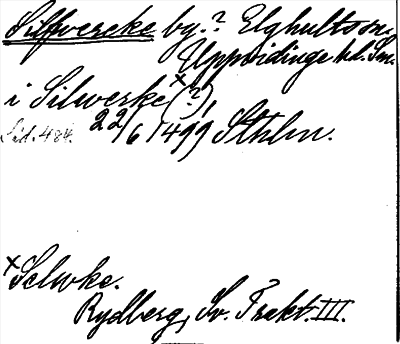 Silfvercke by.? Elghults sn.
Uppvidinge hd. Sm.
i Silwerke x (?)
Sid. 484. 22/6 1499 Sthlm.
x Selwke.
Rydberg, Sv. Trakt. III.